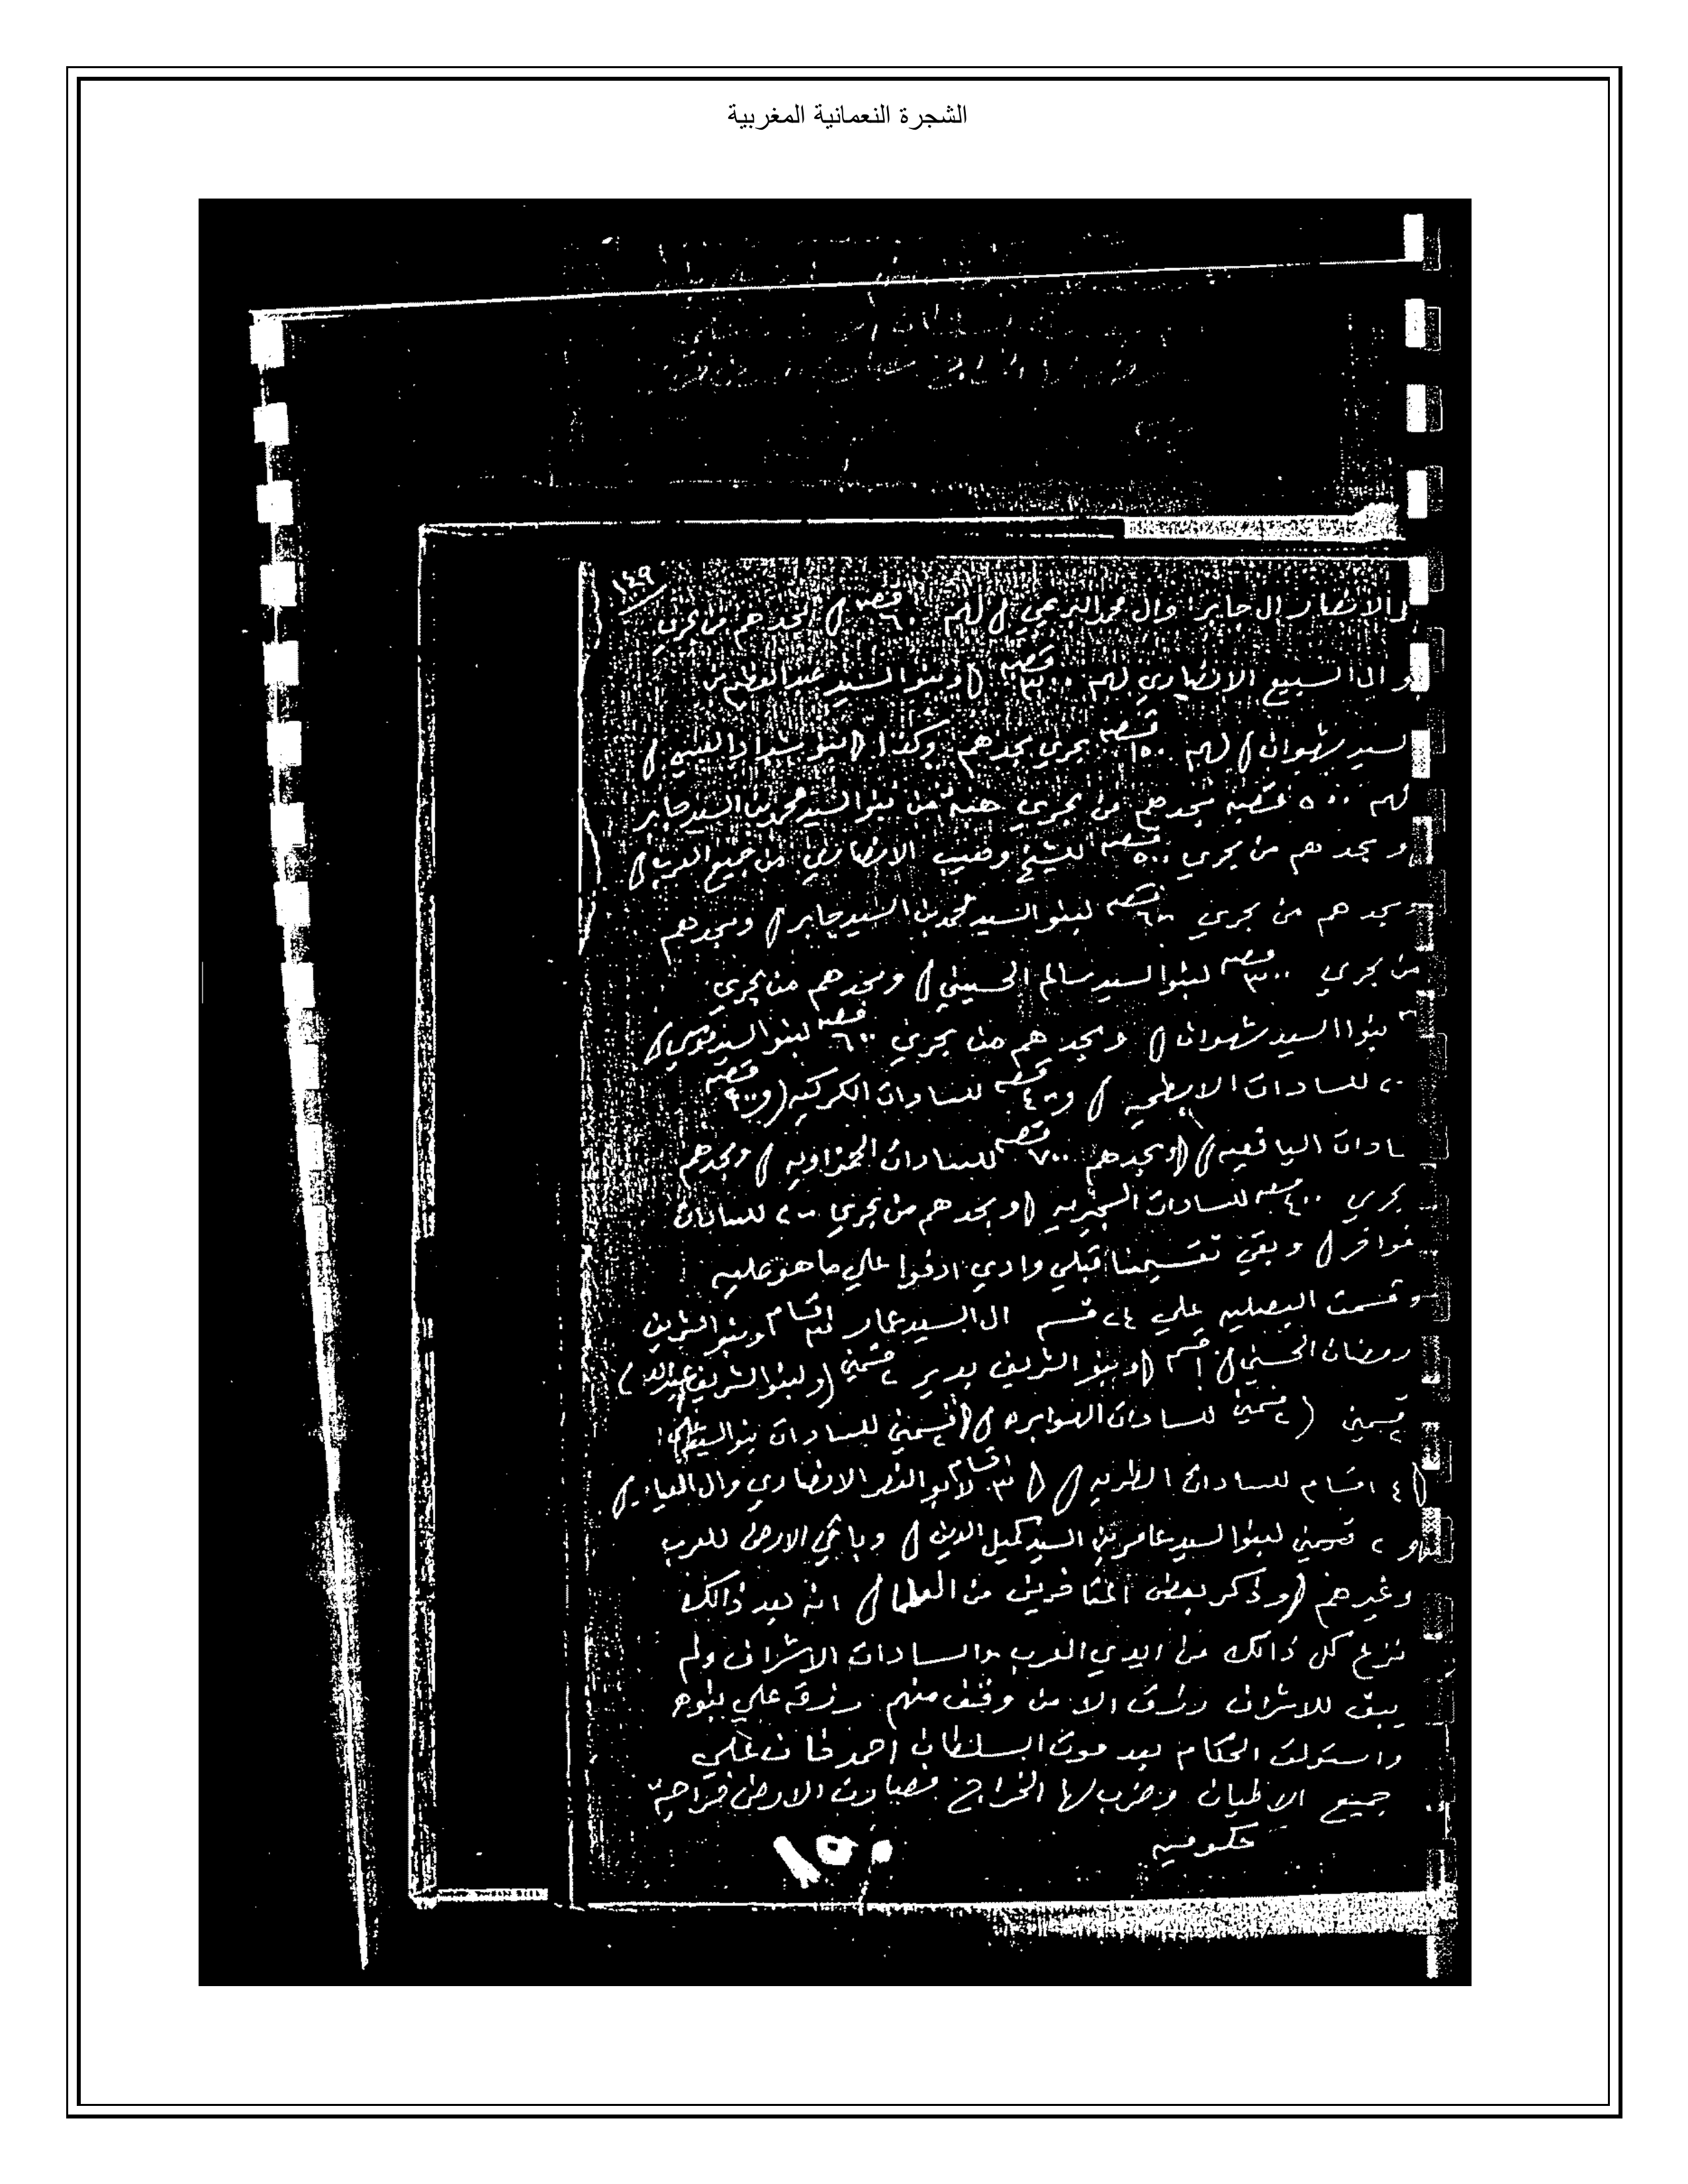 الشجرة النعمانية المغربية
١٤٩
الانصار ال جابر وال محمد لهم قصبه بجدهم من بحري
وال السبيع الانصاري لهم ٣٠٠ قصبه وبنوا السيد عبد العظيم
السيد شهوان لهم ١٥٠ قصبه بحري بجدهم وكذا بنو شداد
لهم ٥٠٠ قصبه بجدهم من بحري من بنوا السيد محمد بن السيد جابر
وبجدهم من بحري ٥٠٠ قصبه للشيخ وهيب الانصاري من جميع العرب
وبجدهم من بحري قصبه لبنوا السيد محمد بن السيد جابر وبجدهم
من بحري ٣٠٠ قصبه لبنوا السيد سالم الحسيني وبجدهم من بحري
بنوا السيد شهوان وبجدهم من بحري ٦٠٠ قصبه لبنوا السيد
للسادات الابطحيه و٤٠٠ قصبه للسادات الكركيه و قصبه
سادات اليافعيه وبجدهم ٧٠٠ قصبه للسادات الحمزاويه وبجدهم
بحري ٤٠٠ قصبه للسادات وبجدهم من بحري ٢٠٠ للسادات
وبقي تقسيمنا قبلي وادي ادفوا علي ما هو عليه
وقسمت البصليه علي ٢٤ قسم ال السيد عمار ٣ اقسام وبنو الشريف
رمضان الحسني قسم وبنو الشريف بدير ٢ قسمني ولبنو الشريف عبد الله
قسمني ٢ قسمني للسادات الهوابره ٢ قسمني للسادات بنو السيد
٤ اقسام للسادات ٣ اقسام لابو النصر الانصاري وال
و ٢ قسمني لبنوا السيد عامر بن السيد كميل الدين وباقي الارض للعرب
وغيرهم وذكر بعض المتاخرين من العلما انه بعد ذالك
نزع كل ذالك من ايدي العرب والسادات الاشراف ولم
يبق للاشراف رزق الا من وقف منهم رزقه علي بنوه
واستولت الحكام بعد موت السلطان احمد خان علي
جميع الاطيان وضرب لها الخراج فصارت الارض خراجيه
حكوميه
١٥٠